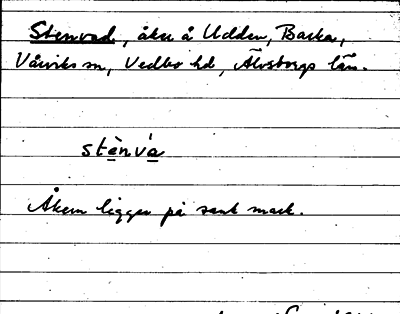 Stenvad, åker å Udden, Backa,
Vårviks sn, Vedbo hd, Älvsborgs län.
stènvá
Åkern ligger på sank mark.